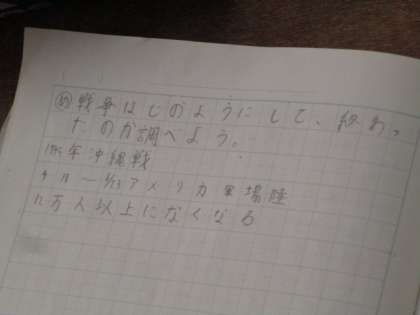 め 戦争はどのようにして、終わっ
たのか調べよう。
1945年沖縄戦
アメリカ軍場陸
12万人以上になくなる